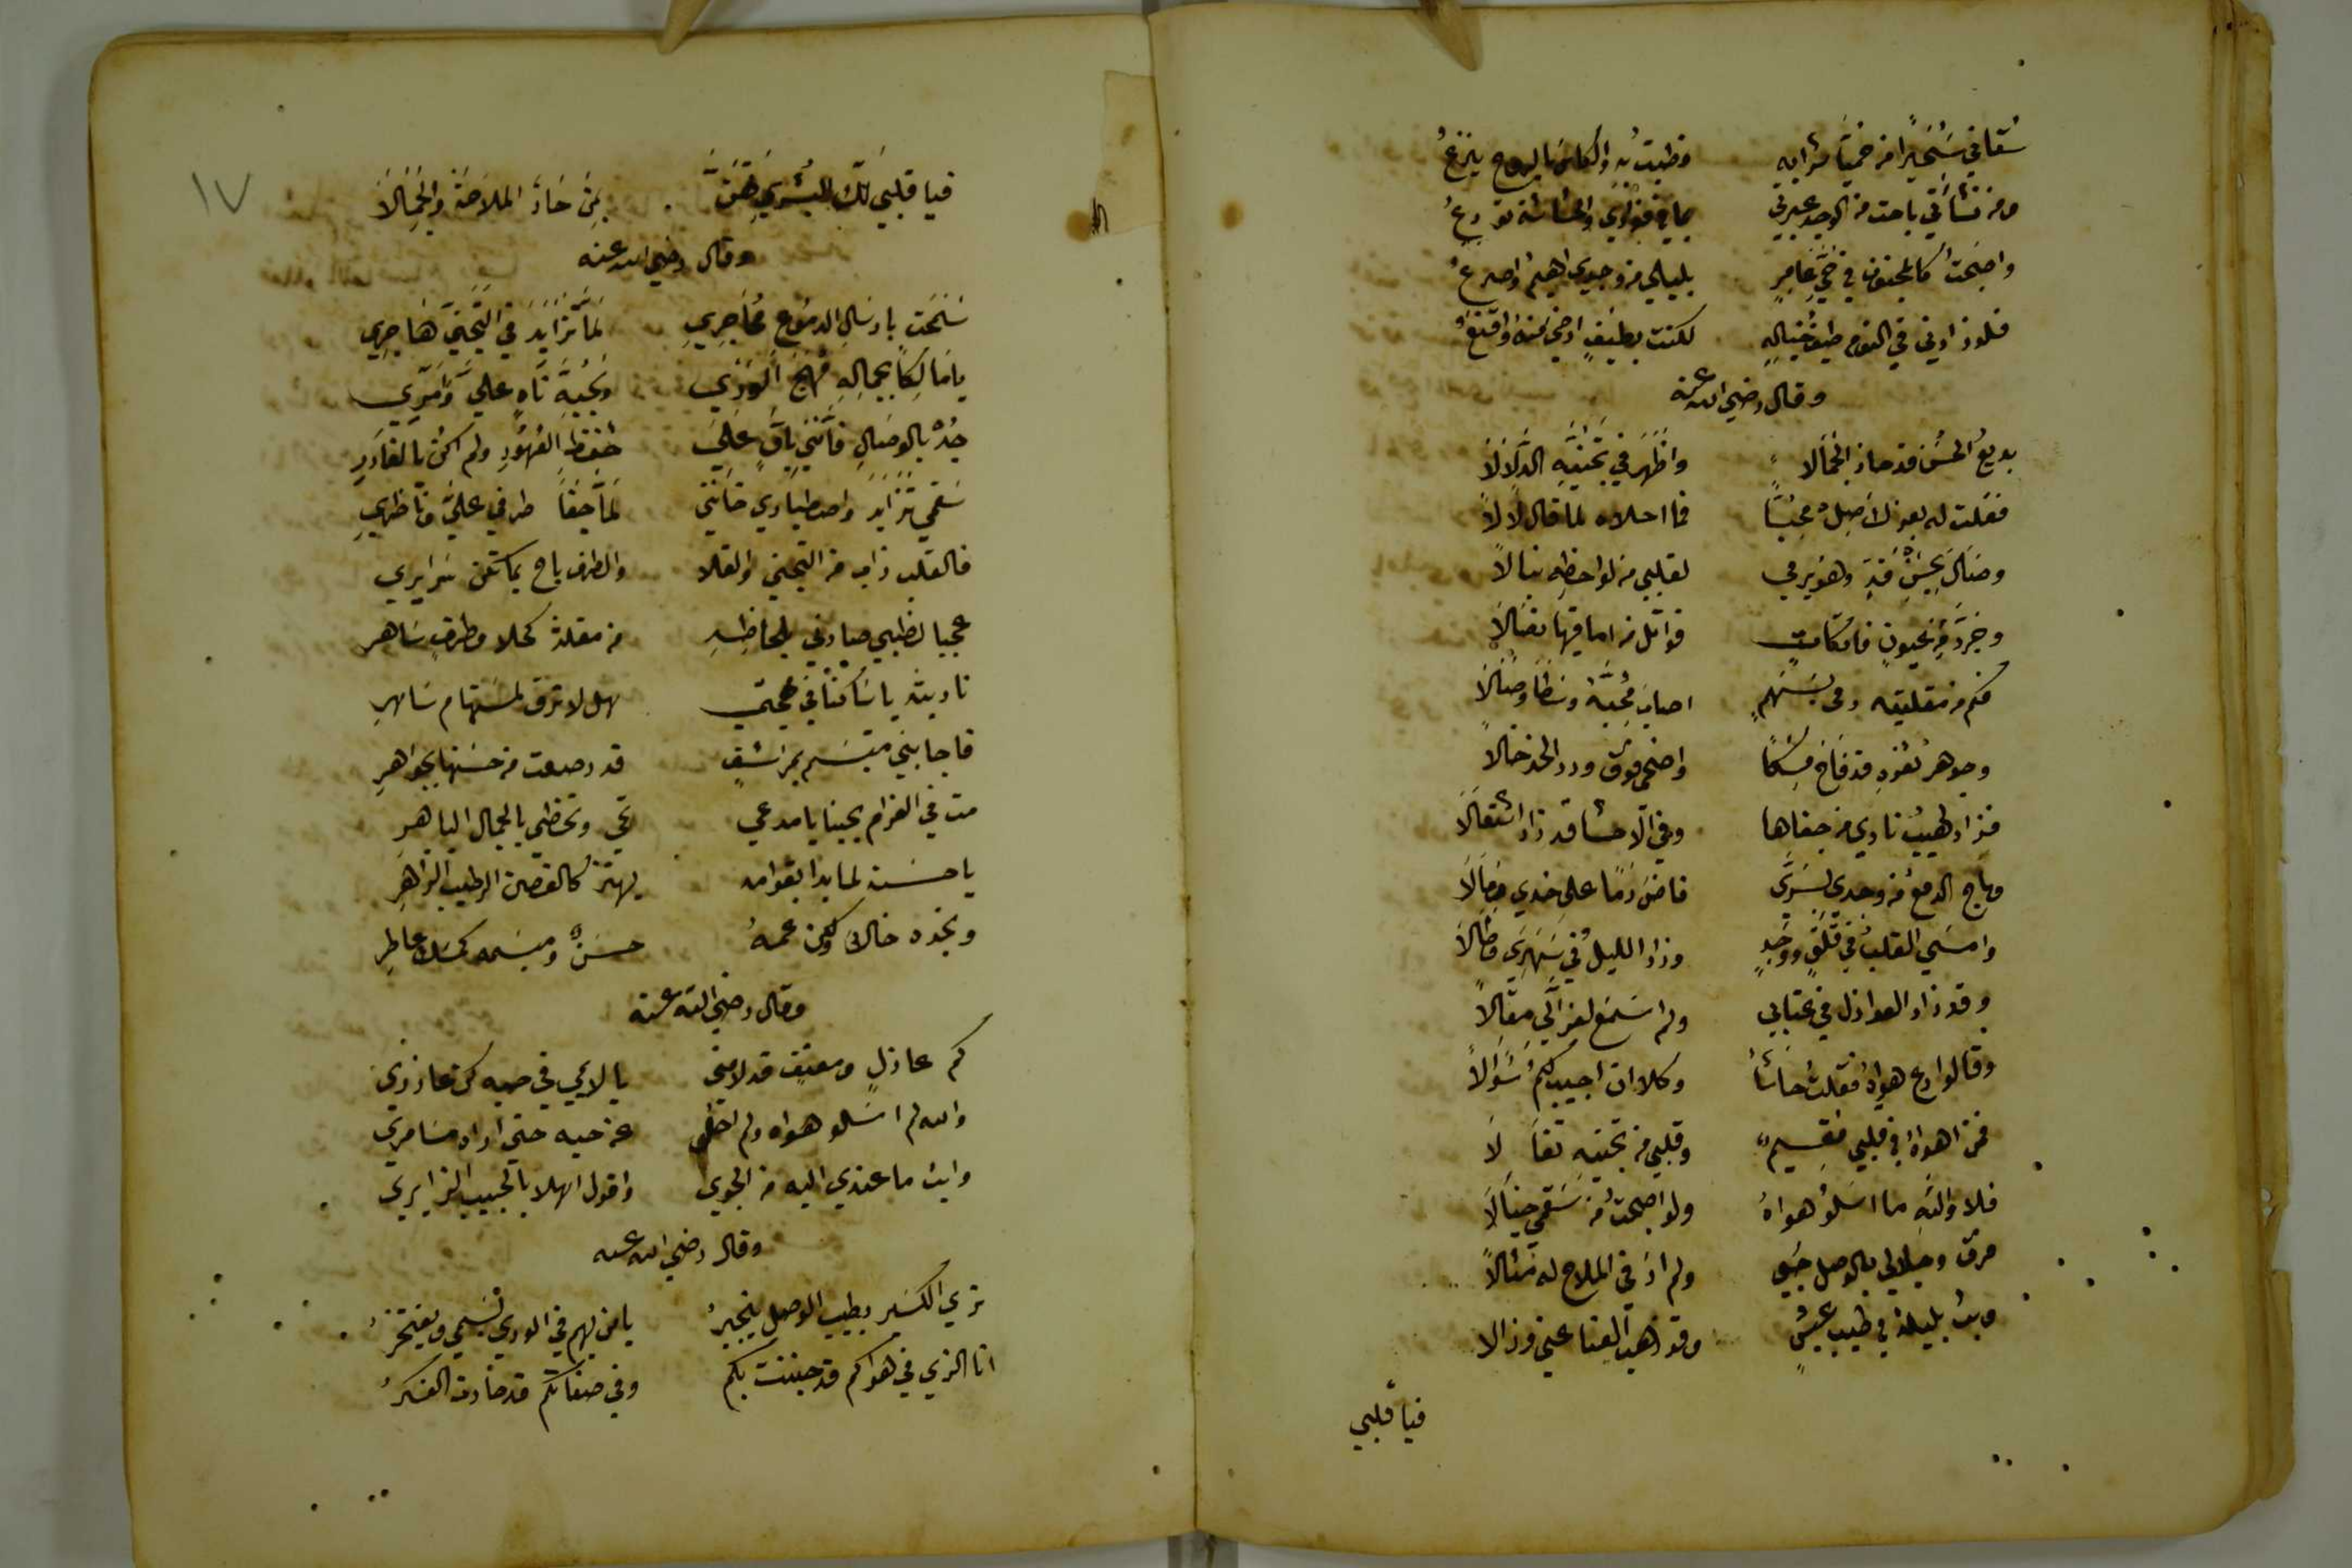 سقاني سُحَيرًا من حُميّا شرابه وطبتُ به والكاس بالروح ينزعُ
ومن نشأتي باحت من الوجد عبرتي بما في فؤادي والحشاشة تودعُ
واصبحتُ كالمجنون في حيّ عامرٍ بليلي من وجدي اهيمُ واصرعُ
فلو زارني في النوم طيفُ خيالهِ لكنت بطيفٍ ارضي منه واقنعُ
وقال رضي الله عنه
بديعُ الحُسن قد حاز الجَمالا واظهَر في تجَنّيهِ الدَّلالاَ
فقلت له بعزك اَصِلْ مُحِبًّا فما احلاه لما قال لا لاَ
وصَال بحُسْنِ قدٍّ وهو يرمي لقلبي من لواحظِهِ نبالاً
وجرَّد من عيونٍ فاتكاتٍ قواتل من اماقيها نصَالاَ
فكم من مقلتيه رمى بسَهمٍ اصابَ مُحبَّهُ وسَطَا وصَالاَ
وجوهر ثغره قد فاح مِسْكًا واضحى فوق ورد الخد خالاً
فزاد لهيبُ ناري من جفاها وفي الاحشا قد زاد اشتعَالاَ
وباح الدمعُ من وجدي بسَرّي فاضَ دمًا على خدي وسَالاَ
وامسَي القلبُ في قلقٍ ووجدٍ وزاد الليلُ في سَهَرِي وطالاَ
وقد زاد العواذل في عتابي ولم اسمَع لعزالي مقالاً
وقالوا دع هواهُ فقلتُ حاشَا وكلا ان اجيب لكم سُؤالاً
فمن اهواهُ في قلبي مقيم وقلبي من تجنيه تقالاَ
فلا واللهِ ما اسلُو هواهُ ولو اصبحتُ من سَقمي خيالاَ
فرق وجاد لي بالوصل حبي ولم ارَ في الملاح له مثالاً
وبتُ بليلة في طيب عيشٍ وقد ذهب العنا عني وزالا
فيا قلبي
١٧
فيا قلبي لك البُشري تهنَّ بمن حَازَ الملاحَة والجَمالاَ
وقال رضي الله عنه
سَمَحَت بارسَالِ الدمُوع محَاجِري لمّا تزَايَدَ في التجَنّي هَاجِرِي
يا مَالكًا بجمالهِ مُهَجَ الوَرَي وبحُبّه نَاهٍ عليَّ وآمري
جُدْ بالوصَالِ فانّني باقٍ علي حفظِ العُهُودِ ولم اكن بالغادرِ
سَقَمي تزَايدَ واصطباري خانني لمّا جفَا طرفي عليَّ وناظري
فالقلب ذاب من التجني والقلا والطرف باح بما تكن سَرايري
عجبا لظبي صادني بلحاظِهِ من مقلة كحلا وطرفٍ سَاهرِ
ناديته يا سَاكنًا في مهجتي هل لا ترق لمسْتهام سَاهرِ
فاجابني متبسّم بمراشفٍ قد رصعت من حسنها بجَواهرِ
مت في الغرام بحبنا يا مدعي تحي وتحظي بالجمال الباهرِ
يا حسنه لما بدا بقوامه يهتز كالغصن الرطيب الزاهرِ
وبخده خالٌ ولكن عمهُ حسَنٌ ومبسَمه كمسَك عاطِر
وقال رضي الله عنه
كم عاذلٍ ومعنفٍ قد لامني يا لايمي في حبه كن عاذري
والله لم اسلو هواه ولم احل عن حبه حتي اراه مسَامري
وابث ما عندي اليه من الجوي واقول اهلا بالحبيب الزايري
وقال رضي الله عنه
تري الكسير بطيب الوصل ينجبرُ يا من بهم في الوري نَسْمي ونفتخرُ
انا الذي في هواكم قد جننت بكم وفي صفاتكم قد حارت الفكرُ